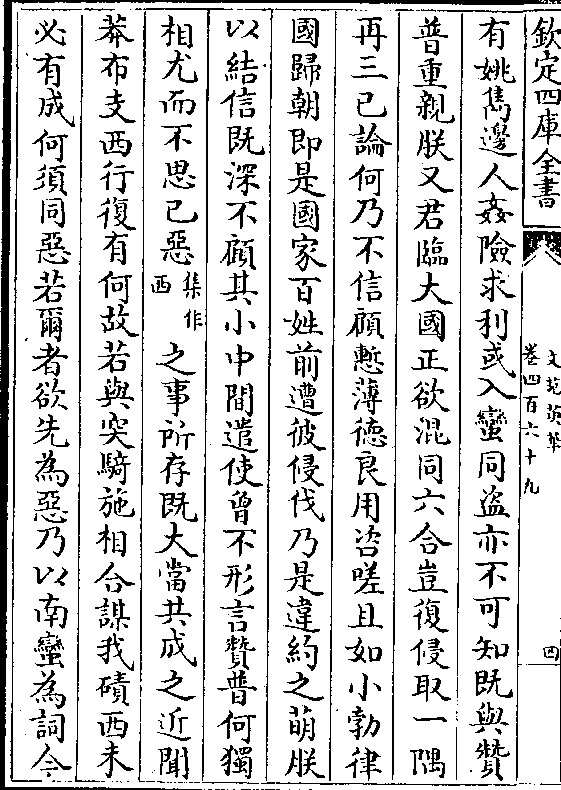 欽定四庫全書
文苑英華
卷四百六十九
四
有姚巂邊人姦險求利或入蠻同盗亦不可知既與贊
普重親朕又君臨大國正欲混同六合豈復侵取一隅
再三已論何乃不信顧慙薄德良用咨嗟且如小勃律
國歸朝即是國家百姓前遭彼侵伐乃是違約之萌朕
以結信既深不顧其小中間遣使曾不形言贊普何獨
相尤而不思已惡集作西之事所存既大當共成之近聞
莽布支西行復有何故若與突騎施相合謀我磧西未
必有成何須同惡若爾者欲先為惡乃以南蠻為詞今